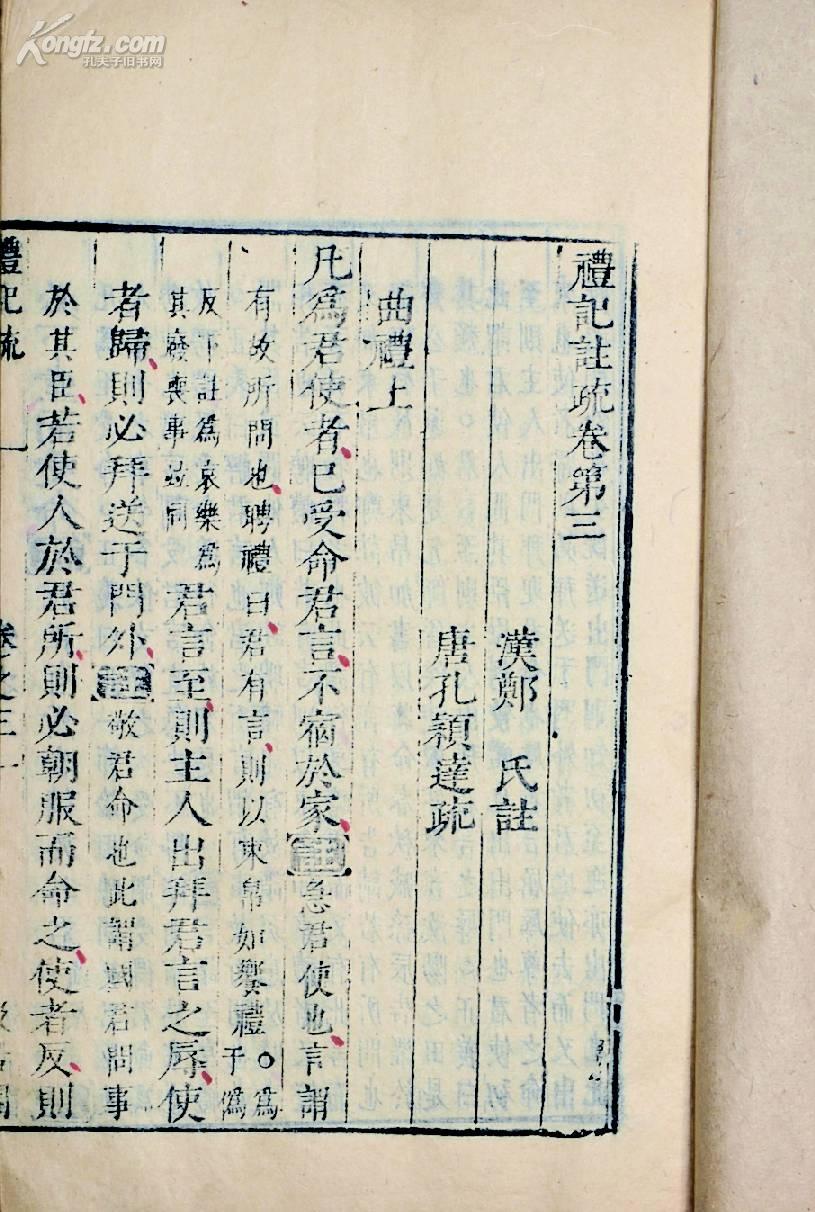 Kongfz.com
孔夫子旧书网
禮記註疏卷第三
漢鄭　氏註
唐孔穎達疏
曲禮上
凡爲君使者已受命君言不宿於家註急君使也言謂
有故所問也聘禮曰君有言則以束帛如饗禮○爲于僞
反下註爲哀樂爲其廢喪事並同君言至則主人出拜君言之辱使
者歸則必拜送于門外註敬君命也此謂國君問事
於其臣若使人於君所則必朝服而命之使者反則
禮記疏　卷之三　一